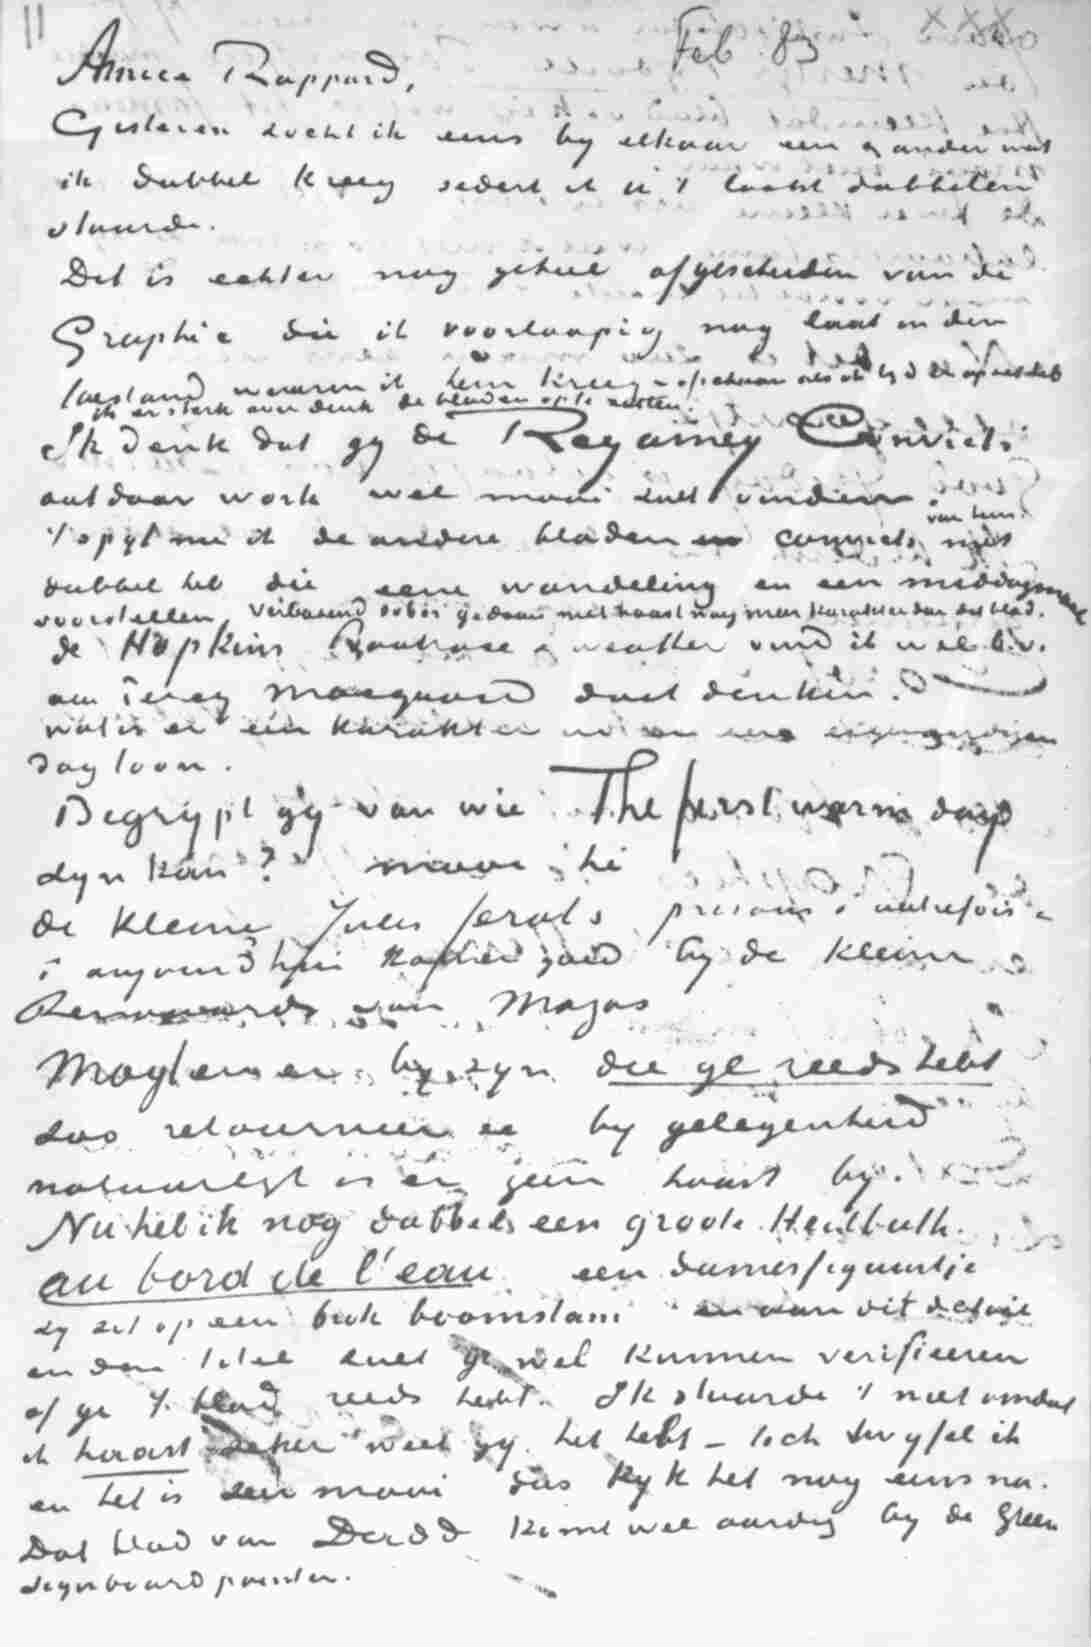 11
Feb 83
Amice Rappard,
Gisteren zocht ik eens by elkaar een & ander wat
ik dubbel kreeg sedert ik u 't laatst dubbelen
stuurde.
Dit is echter nog geheel afgescheiden van de
Graphic die ik voorloopig nog laat in den
toestand waarin ik hem kreeg - ofschoon als ik tyd
ik er sterk over denk de bladen op te zetten.
Ik denk dat gy de Regamey Convicts
outdoor work wel mooi zult vinden.
't spyt me ik de andere bladen convicts van hem niet
dubbel heb die eene wandeling en een middagmaal
voorstellen, verbazend sober gedaan met haast nog meer karakter dan dat blad.
de Hopkins Roathose & weather vind ik wel b.v.
aan Percy Macquoid doet denken.
wat is er een karakter in
dag loon.
Begrypt gy van wie The first warm day
zyn kan? mooi hé
de kleine Jules Ferats prisons autrefois &
aujourd'hui kapitaal goed by de kleine
Renouards van Mazas
Mogten er by zyn die ge reeds hebt
zoo retourneer ze by gelegenheid
natuurlyk is er geen haast by.
Nu heb ik nog dubbel een groote Heilbuth.
au bord de l'eau een damesfiguurtje
zy zit op een brok boomstam en aan dit detail
en den titel zult ge wel kunnen verifieeren
of ge 't blad reeds hebt. Ik stuurde 't niet omdat
ik haast zeker weet gy het hebt - toch twyfel ik
en het is zeer mooi dus kyk het nog eens na.
Dat blad van Dodd komt wel aardig by de Green
signboard painter.